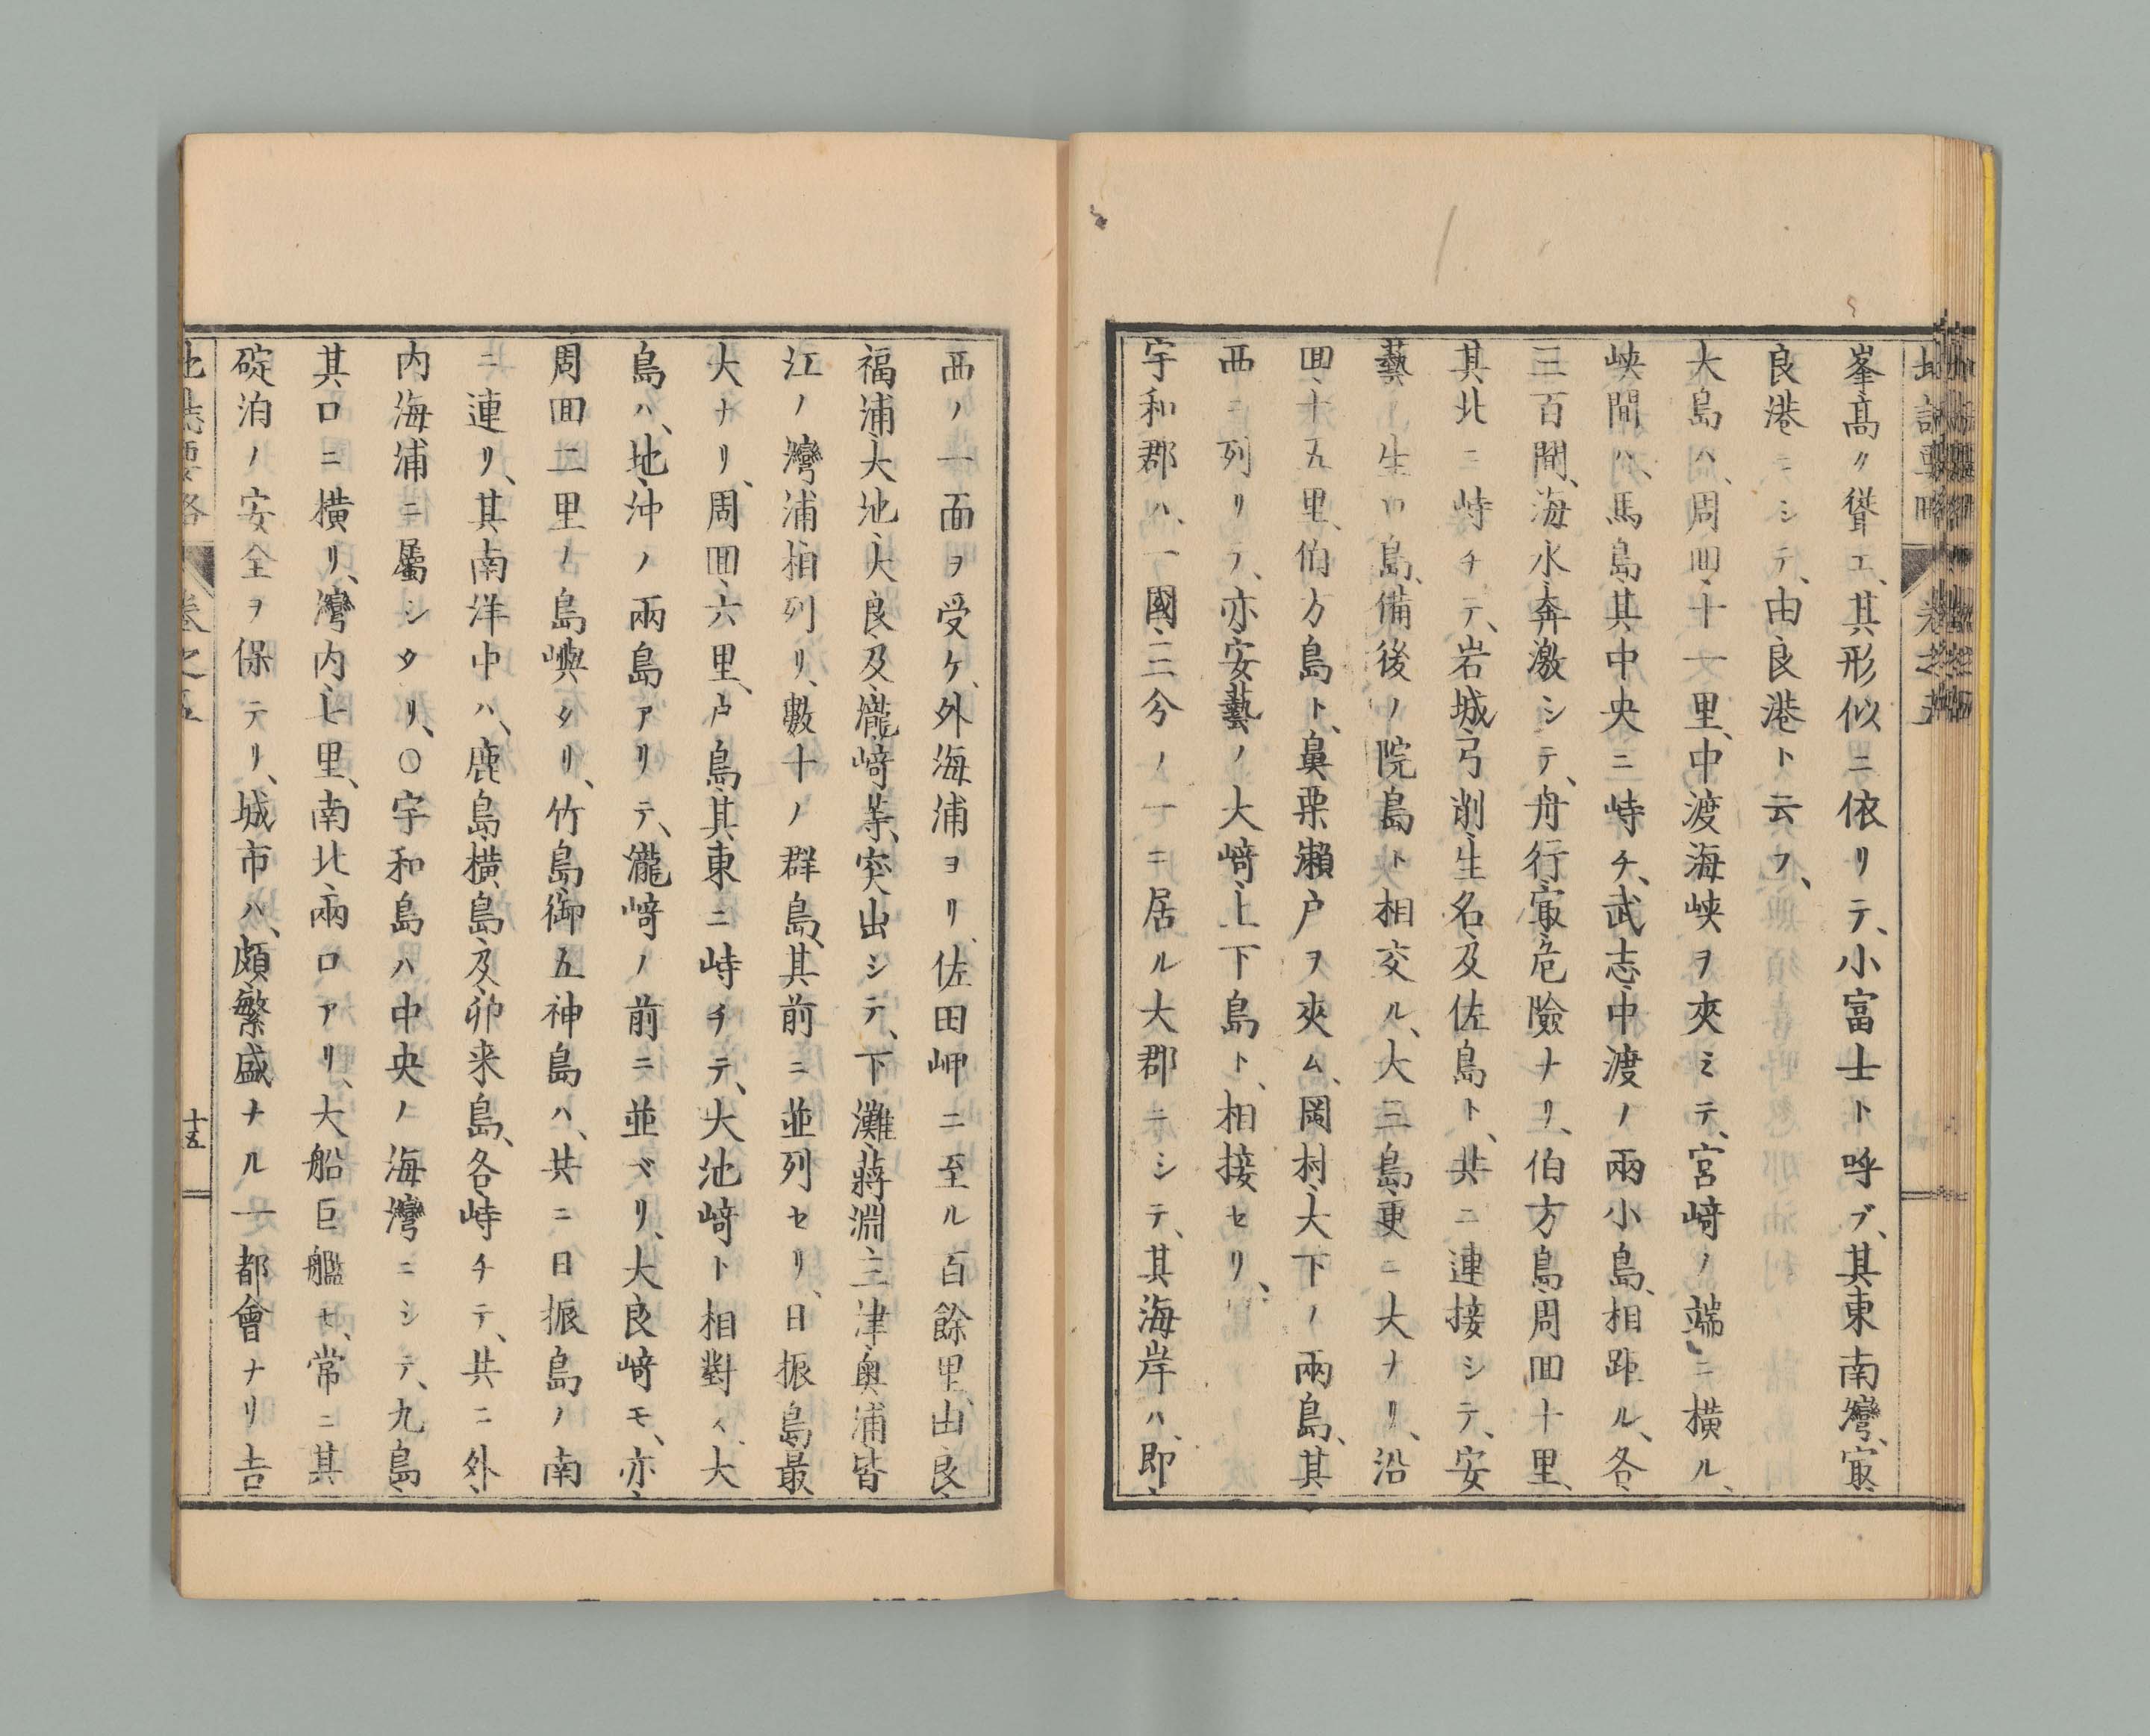 地誌要略 卷之五
峯髙ク聳エ、其形似ニ依リテ、小富士ト呼ブ、其東南灣、㝡
良港ニシテ、由良港ト云フ、
大島ハ、周回十一里、中渡海峡ヲ夾ミテ、宮﨑ノ端ニ横ル、
峡間ハ、馬島其中央ニ峙チ、武志中渡ノ兩小島、相距ル、各
三百間、海水奔激シテ、舟行㝡危險ナリ、伯方島周回十里、
其北ニ峙チテ、岩城弓削生名及佐島ト、共ニ連接シテ、安
藝ノ生口島、備後ノ院島ト相交ル、大三島更ニ大ナリ、沿
回十五里、伯方島ト、鼻栗瀬户ヲ夾ム、岡村大下ノ兩島、其
西ニ列リテ、亦安藝ノ大﨑上下島ト、相接セリ、
宇和郡ハ、一國三分ノ一ニ居ル大郡ニシテ、其海岸ハ、即
西ノ一面ヲ受ケ、外海浦ヨリ、佐田岬ニ至ル百餘里、由良
福浦大池大良及瀧﨑等、突出シテ、下灘蔣淵三津奥浦皆
江ノ灣浦相列リ、數十ノ群島、其前ニ並列セリ、日振島最
大ナリ、周回六里、户島其東ニ峙チテ、大池﨑ト相對ス、大
島ハ、地沖ノ兩島アリテ、瀧﨑ノ前ニ並ベリ、大良﨑モ、亦
周回二里ノ島嶼タリ、竹島御五神島ハ、共ニ日振島ノ南
ニ連リ、其南洋中ハ、鹿島横島及卯来島、各峙チテ、共ニ外
内海浦ニ屬シタリ、〇宇和島ハ中央ノ海灣ニシテ、九島
其口ニ横リ、灣内七里、南北兩口アリ、大船巨艦モ、常ニ其
碇泊ノ安全ヲ保テリ、城市ハ、頗繁盛ナル一都會ナリ吉
地誌要略 卷之五 十五